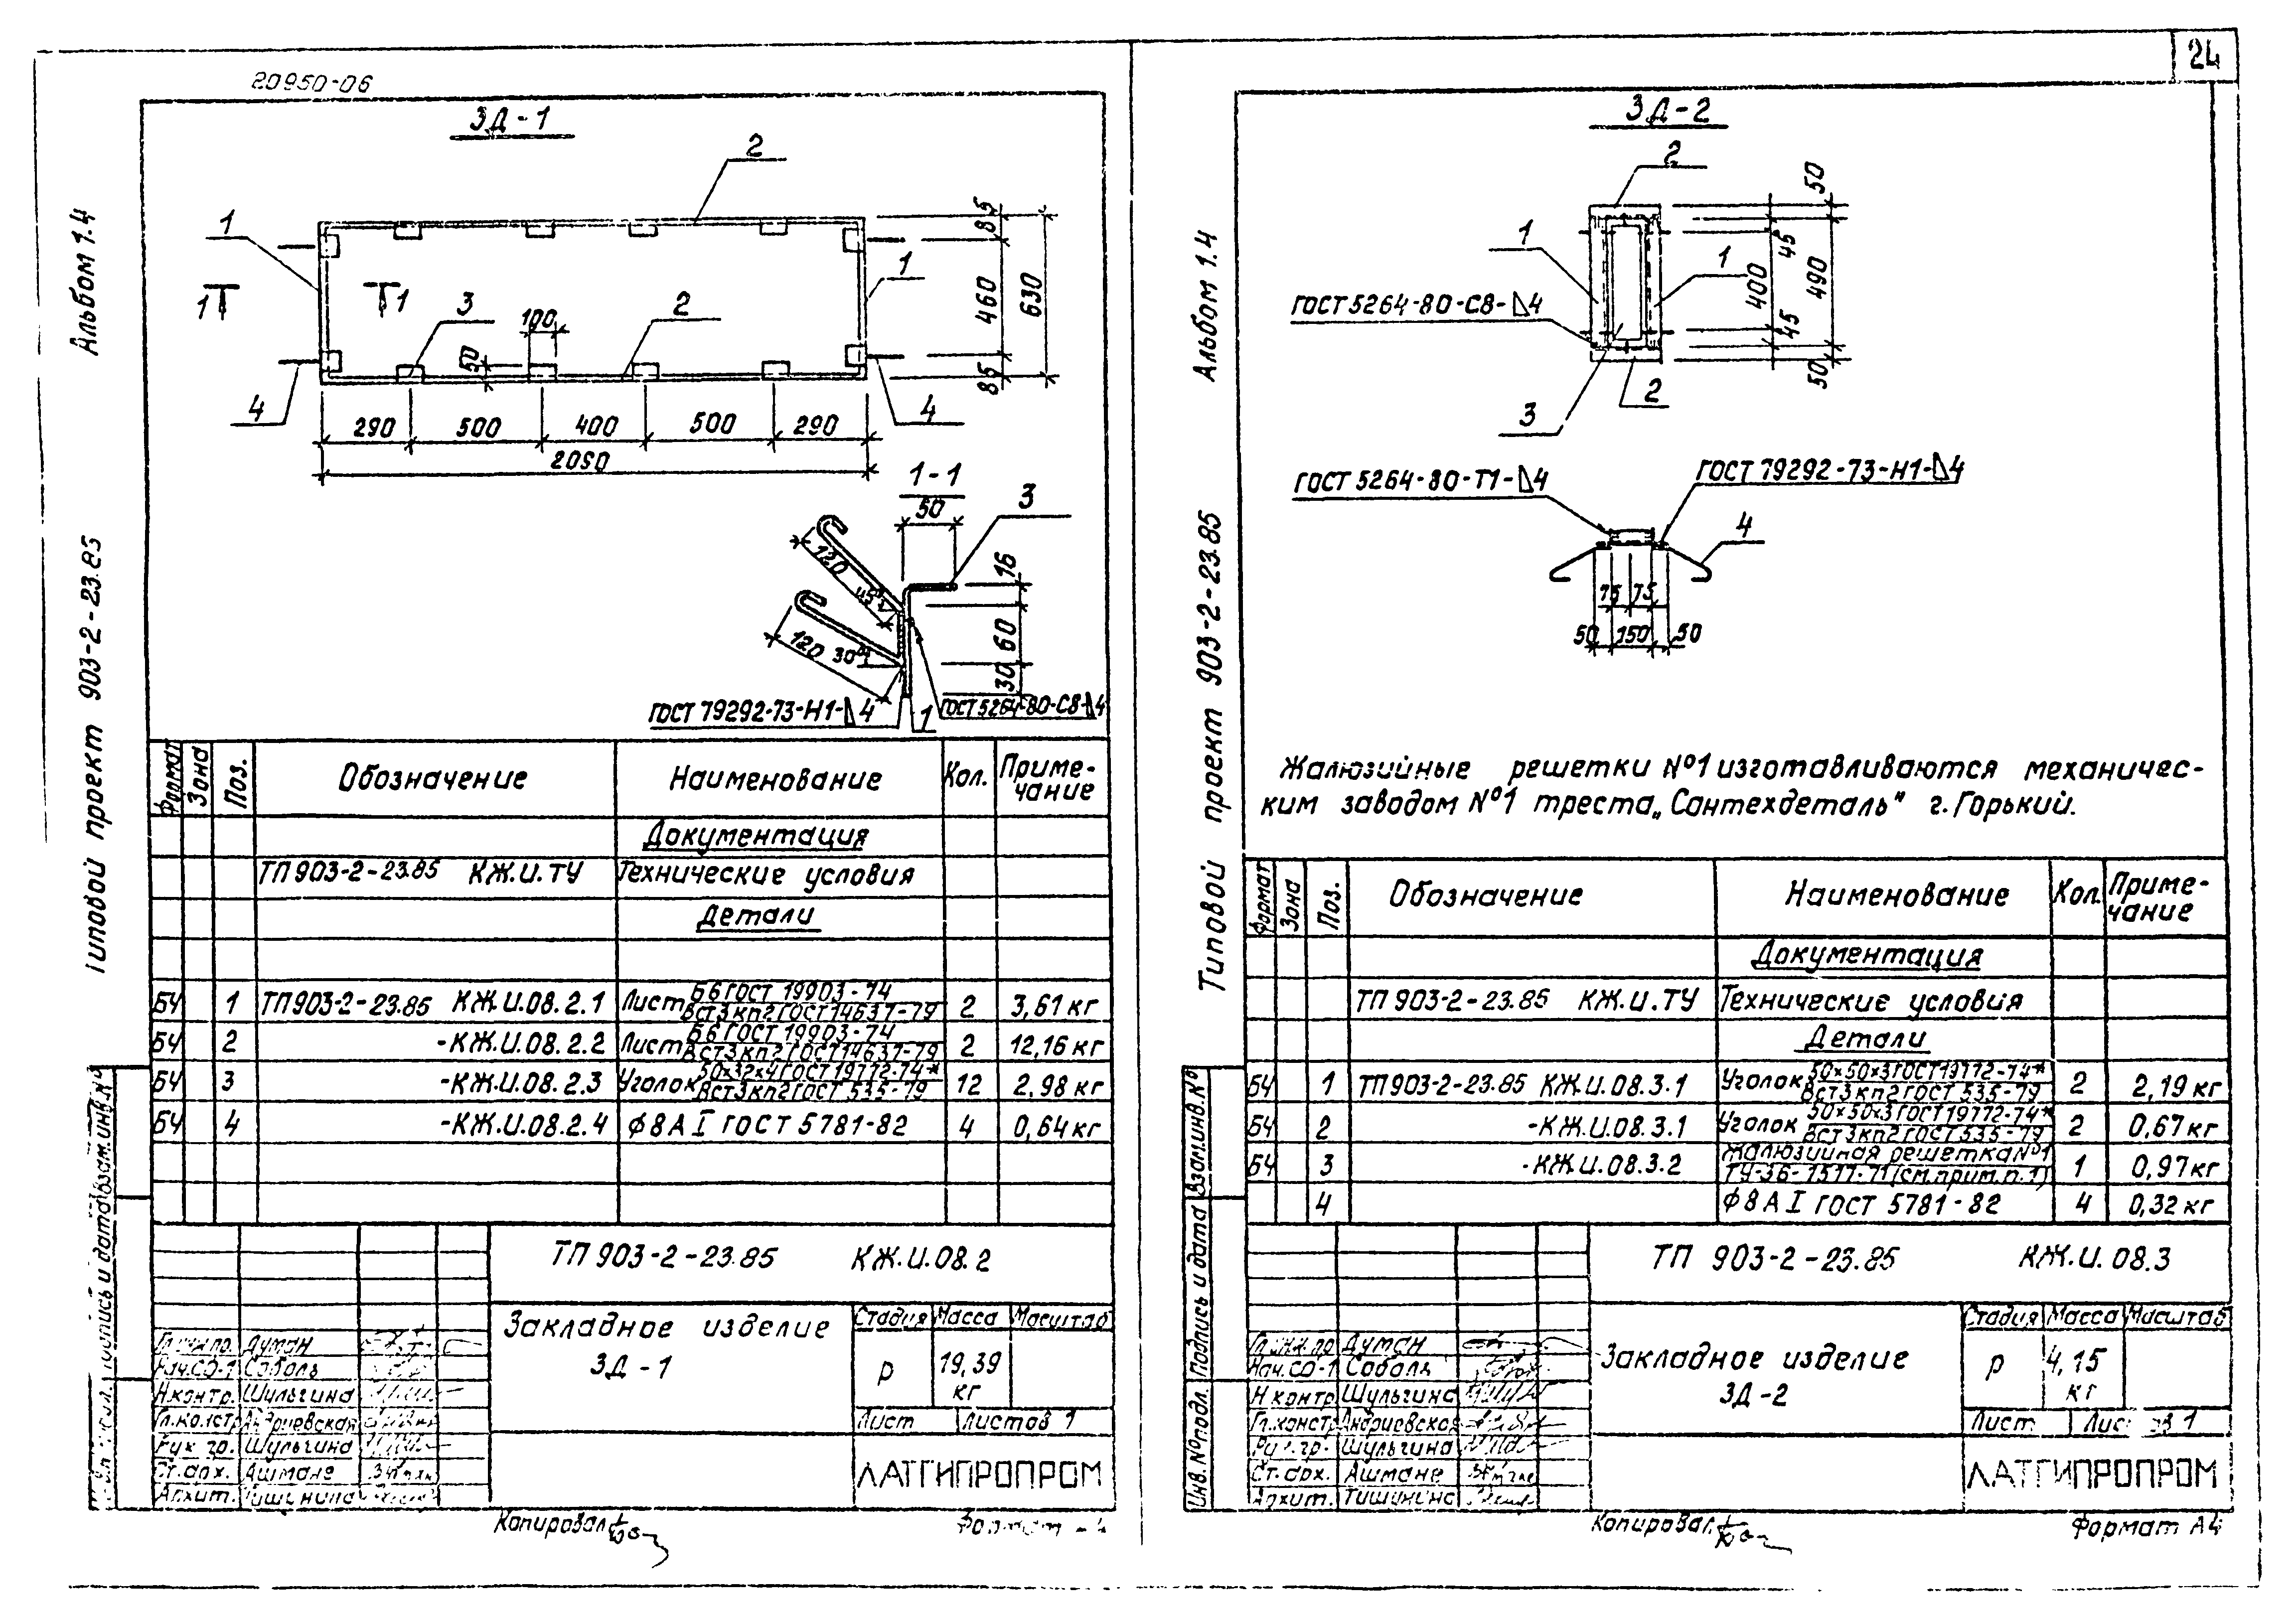 24
20950-06
Альбом 1.4
Типовой проект 903-2-23.85
ЗД-1
2
1
1
1
1
3
100
2
50
4
4
85
460
630
85
290
500
400
500
290
2090
1-1
50
3
120
45°
120
30°
16
60
30
ГОСТ 79292-73-Н1-△4
1
ГОСТ 5264-80-С8-△4
Формат
Зона
Поз.
Обозначение
Наименование
Кол.
Приме-
чание
Документация
ТП 903-2-23.85 КЖ.И.ТУ Технические условия
Детали
БЧ 1 ТП903-2-23.85 КЖ.И.08.2.1 Лист Б6 ГОСТ 19903-74 2 3,61 кг
ВСт3кп2 ГОСТ 14637-79
БЧ 2 -КЖ.И.08.2.2 Лист Б6 ГОСТ 19903-74 2 12,16 кг
ВСт3кп2 ГОСТ 14637-79
БЧ 3 -КЖ.И.08.2.3 Уголок 50×32×4 ГОСТ 19772-74* 12 2,98 кг
ВСт3кп2 ГОСТ 535-79
БЧ 4 -КЖ.И.08.2.4 Ф8АI ГОСТ 5781-82 4 0,64 кг
ТП 903-2-23.85 КЖ.И.08.2
Закладное изделие
ЗД-1
Стадия Масса Масштаб
Р 19,39
кг
Лист Листов 1
ЛАТГИПРОПРОМ
Гл.инж.пр. Думан
Нач.СО-1 Соболь
Н.контр. Шульгина
Гл.констр. Андриевская
Рук.гр. Шульгина
Ст.арх. Ашмане
Архит. Тишинина
Взам.инв.№
Подпись и дата
Копировал
Формат А4
Альбом 1.4
Типовой проект 903-2-23.85
ЗД-2
2
1
1
ГОСТ 5264-80-С8-△4
50
45
400
490
45
50
2
3
ГОСТ 5264-80-Т1-△4
ГОСТ 79292-73-Н1-△4
4
75
75
50
150
50
Жалюзийные решетки №1 изготавливаются механичес-
ким заводом №1 треста „Сантехдеталь" г. Горький.
Формат
Зона
Поз.
Обозначение
Наименование
Кол.
Приме-
чание
Документация
ТП 903-2-23.85 КЖ.И.ТУ Технические условия
Детали
БЧ 1 ТП903-2-23.85 КЖ.И.08.3.1 Уголок 50×50×3 ГОСТ 19772-74* 2 2,19 кг
ВСт3кп2 ГОСТ 535-79
БЧ 2 -КЖ.И.08.3.1 Уголок 50×50×3 ГОСТ 19772-74* 2 0,67 кг
ВСт3кп2 ГОСТ 535-79
БЧ 3 -КЖ.И.08.3.2 Жалюзийная решетка №1 1 0,97 кг
ТУ-36-1517-71 (см.прим.п.1)
4 Ф8АI ГОСТ 5781-82 4 0,32 кг
ТП 903-2-23.85 КЖ.И.08.3
Закладное изделие
ЗД-2
Стадия Масса Масштаб
Р 4,15
кг
Лист Листов 1
ЛАТГИПРОПРОМ
Гл.инж.пр. Думан
Нач.СО-1 Соболь
Н.контр. Шульгина
Гл.констр. Андриевская
Рук.гр. Шульгина
Ст.арх. Ашмане
Архит. Тишинина
Взам.инв.№
Подпись и дата
Инв.№подл.
Копировал
Формат А4